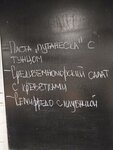 Паста „Путанеска" с
тунцом
Средиземноморский салат
с креветками
Семифредо с клубникой